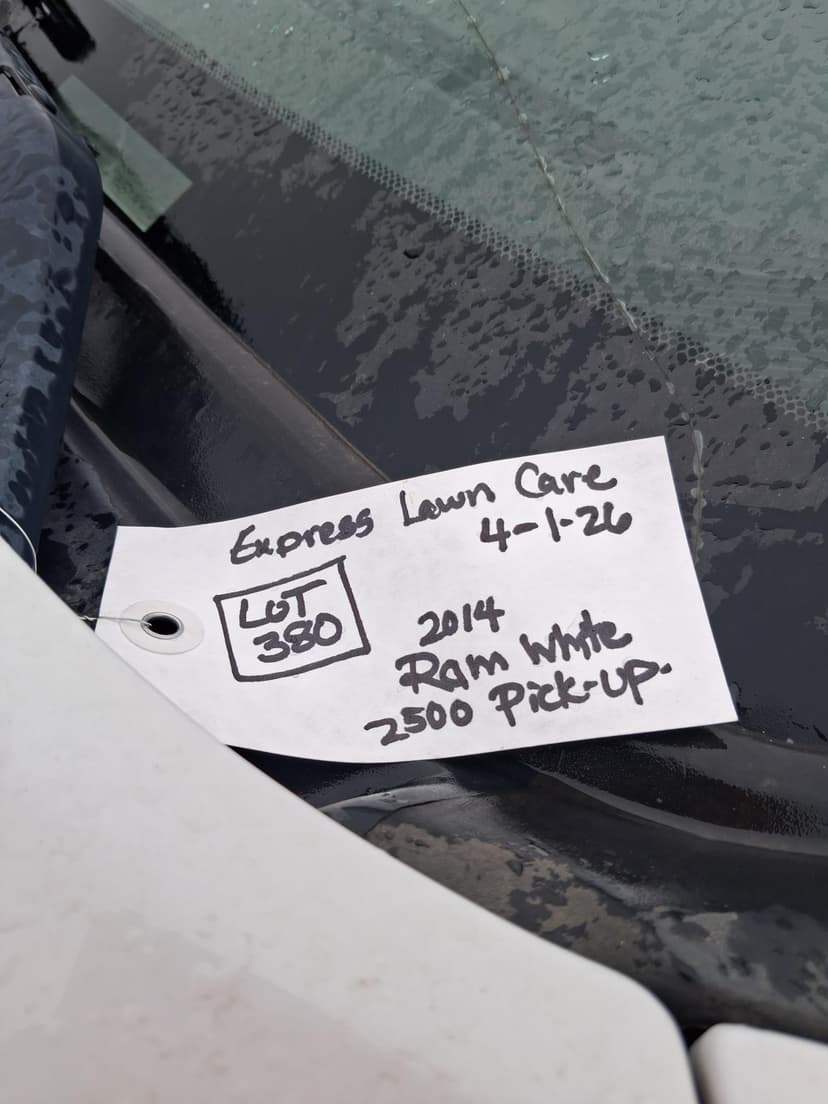 Express Lawn Care
4-1-26
LOT
380
2014
Ram White
2500 Pick-up.